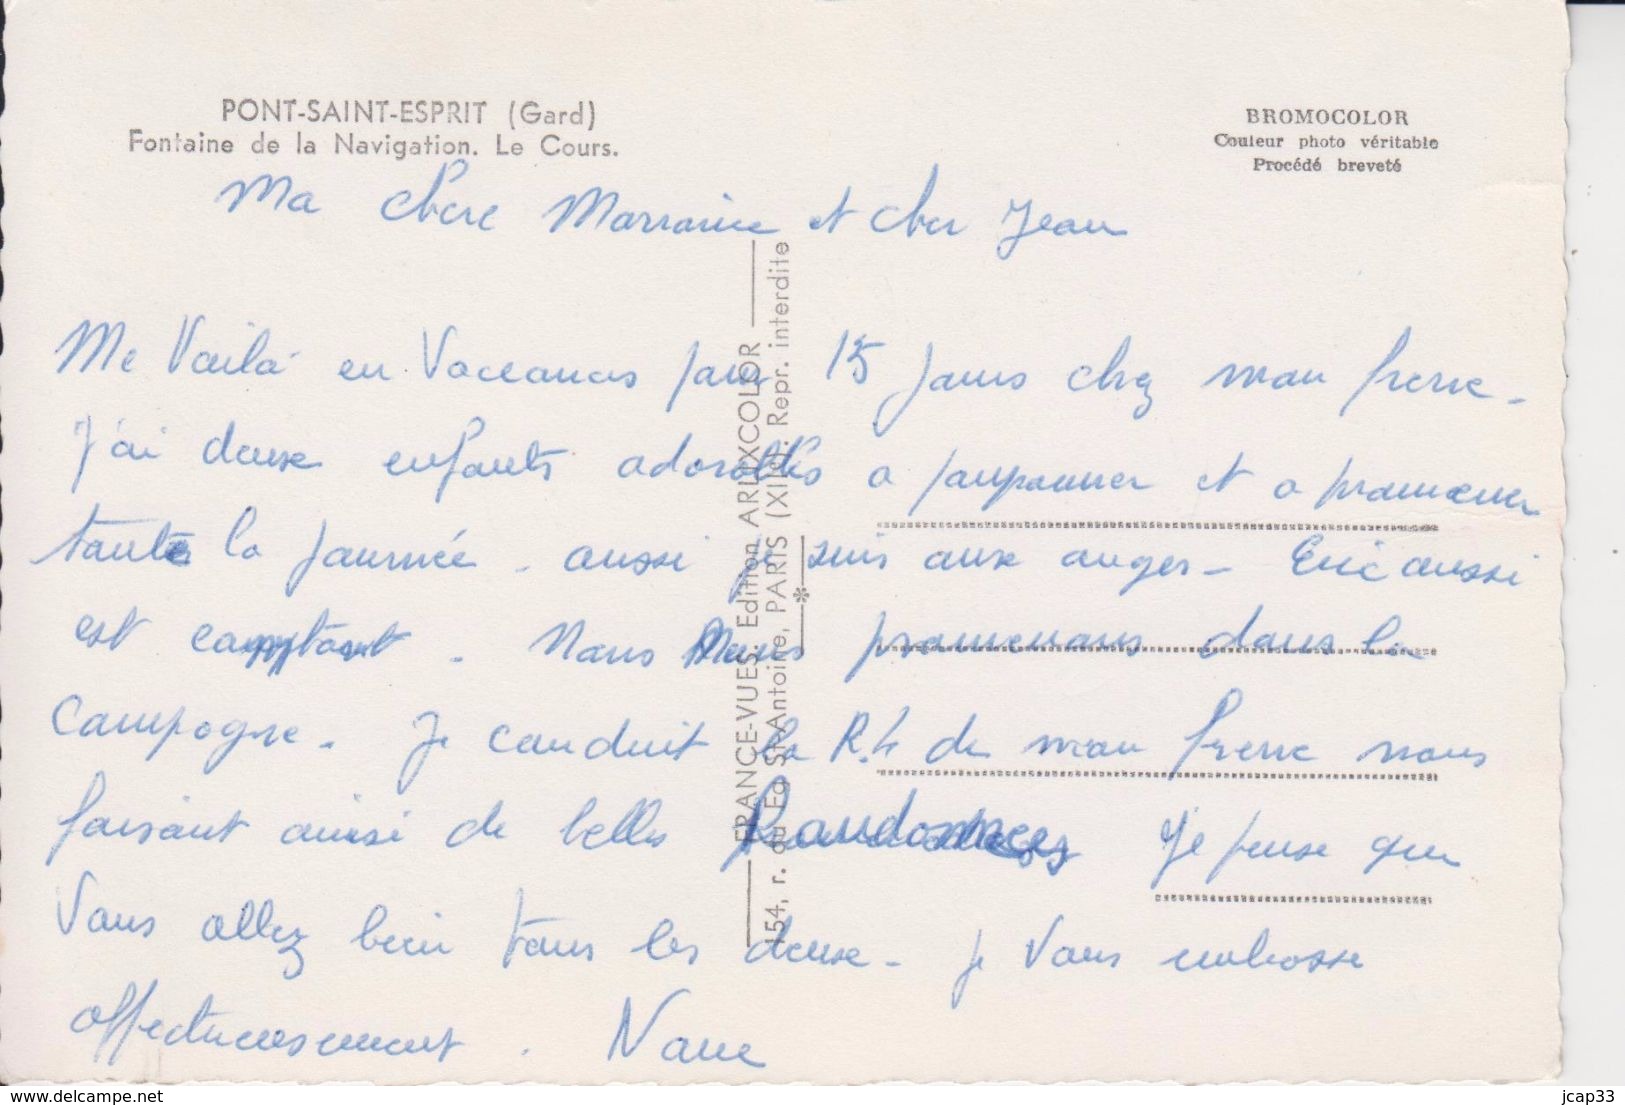 PONT-SAINT-ESPRIT (Gard)
Fontaine de la Navigation. Le Cours.
BROMOCOLOR
Couleur photo véritable
Procédé breveté
Ma chère Marraine et cher Jean
Me Voilà en Vaccances pour 15 jours chez mon frerre -
J'ai deux enfants adorables a pouponner et a promener
toute la journée . aussi je suis aux anges - Eric aussi
est content . Nous nous promenons dans la
Campagne . Je conduit la R.4 de mon frerre nous
faisant ainsi de belles Randonnees Je pense que
Vous allez bein tous les deux - je Vous embrasse
affectueusement . Nane
FRANCE-VUES. Edition ARLIXCOLOR
154, r. du Fg St-Antoine, PARIS (XIIe). Repr. interdite
www.delcampe.net
jcap33